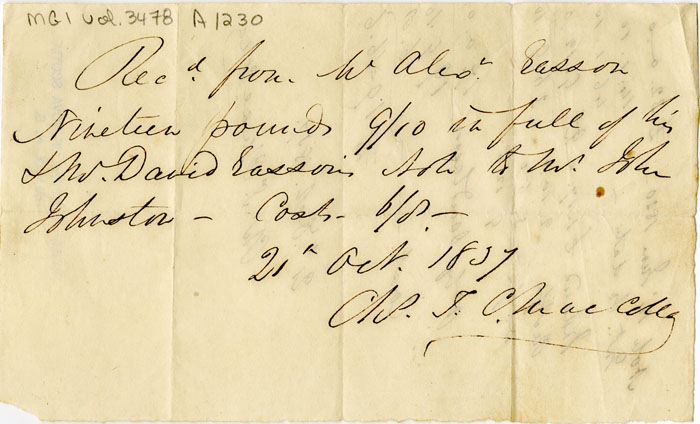 MG1 Vol. 3478 A1230
Rec'd. from Mr Alexr. Easson
Nineteen pounds 9/10 in full of his
& Mr. David Easson's to Mr. John
Johnston - Costs 6/8. -
21st Oct. 1837
T. C. MacColla